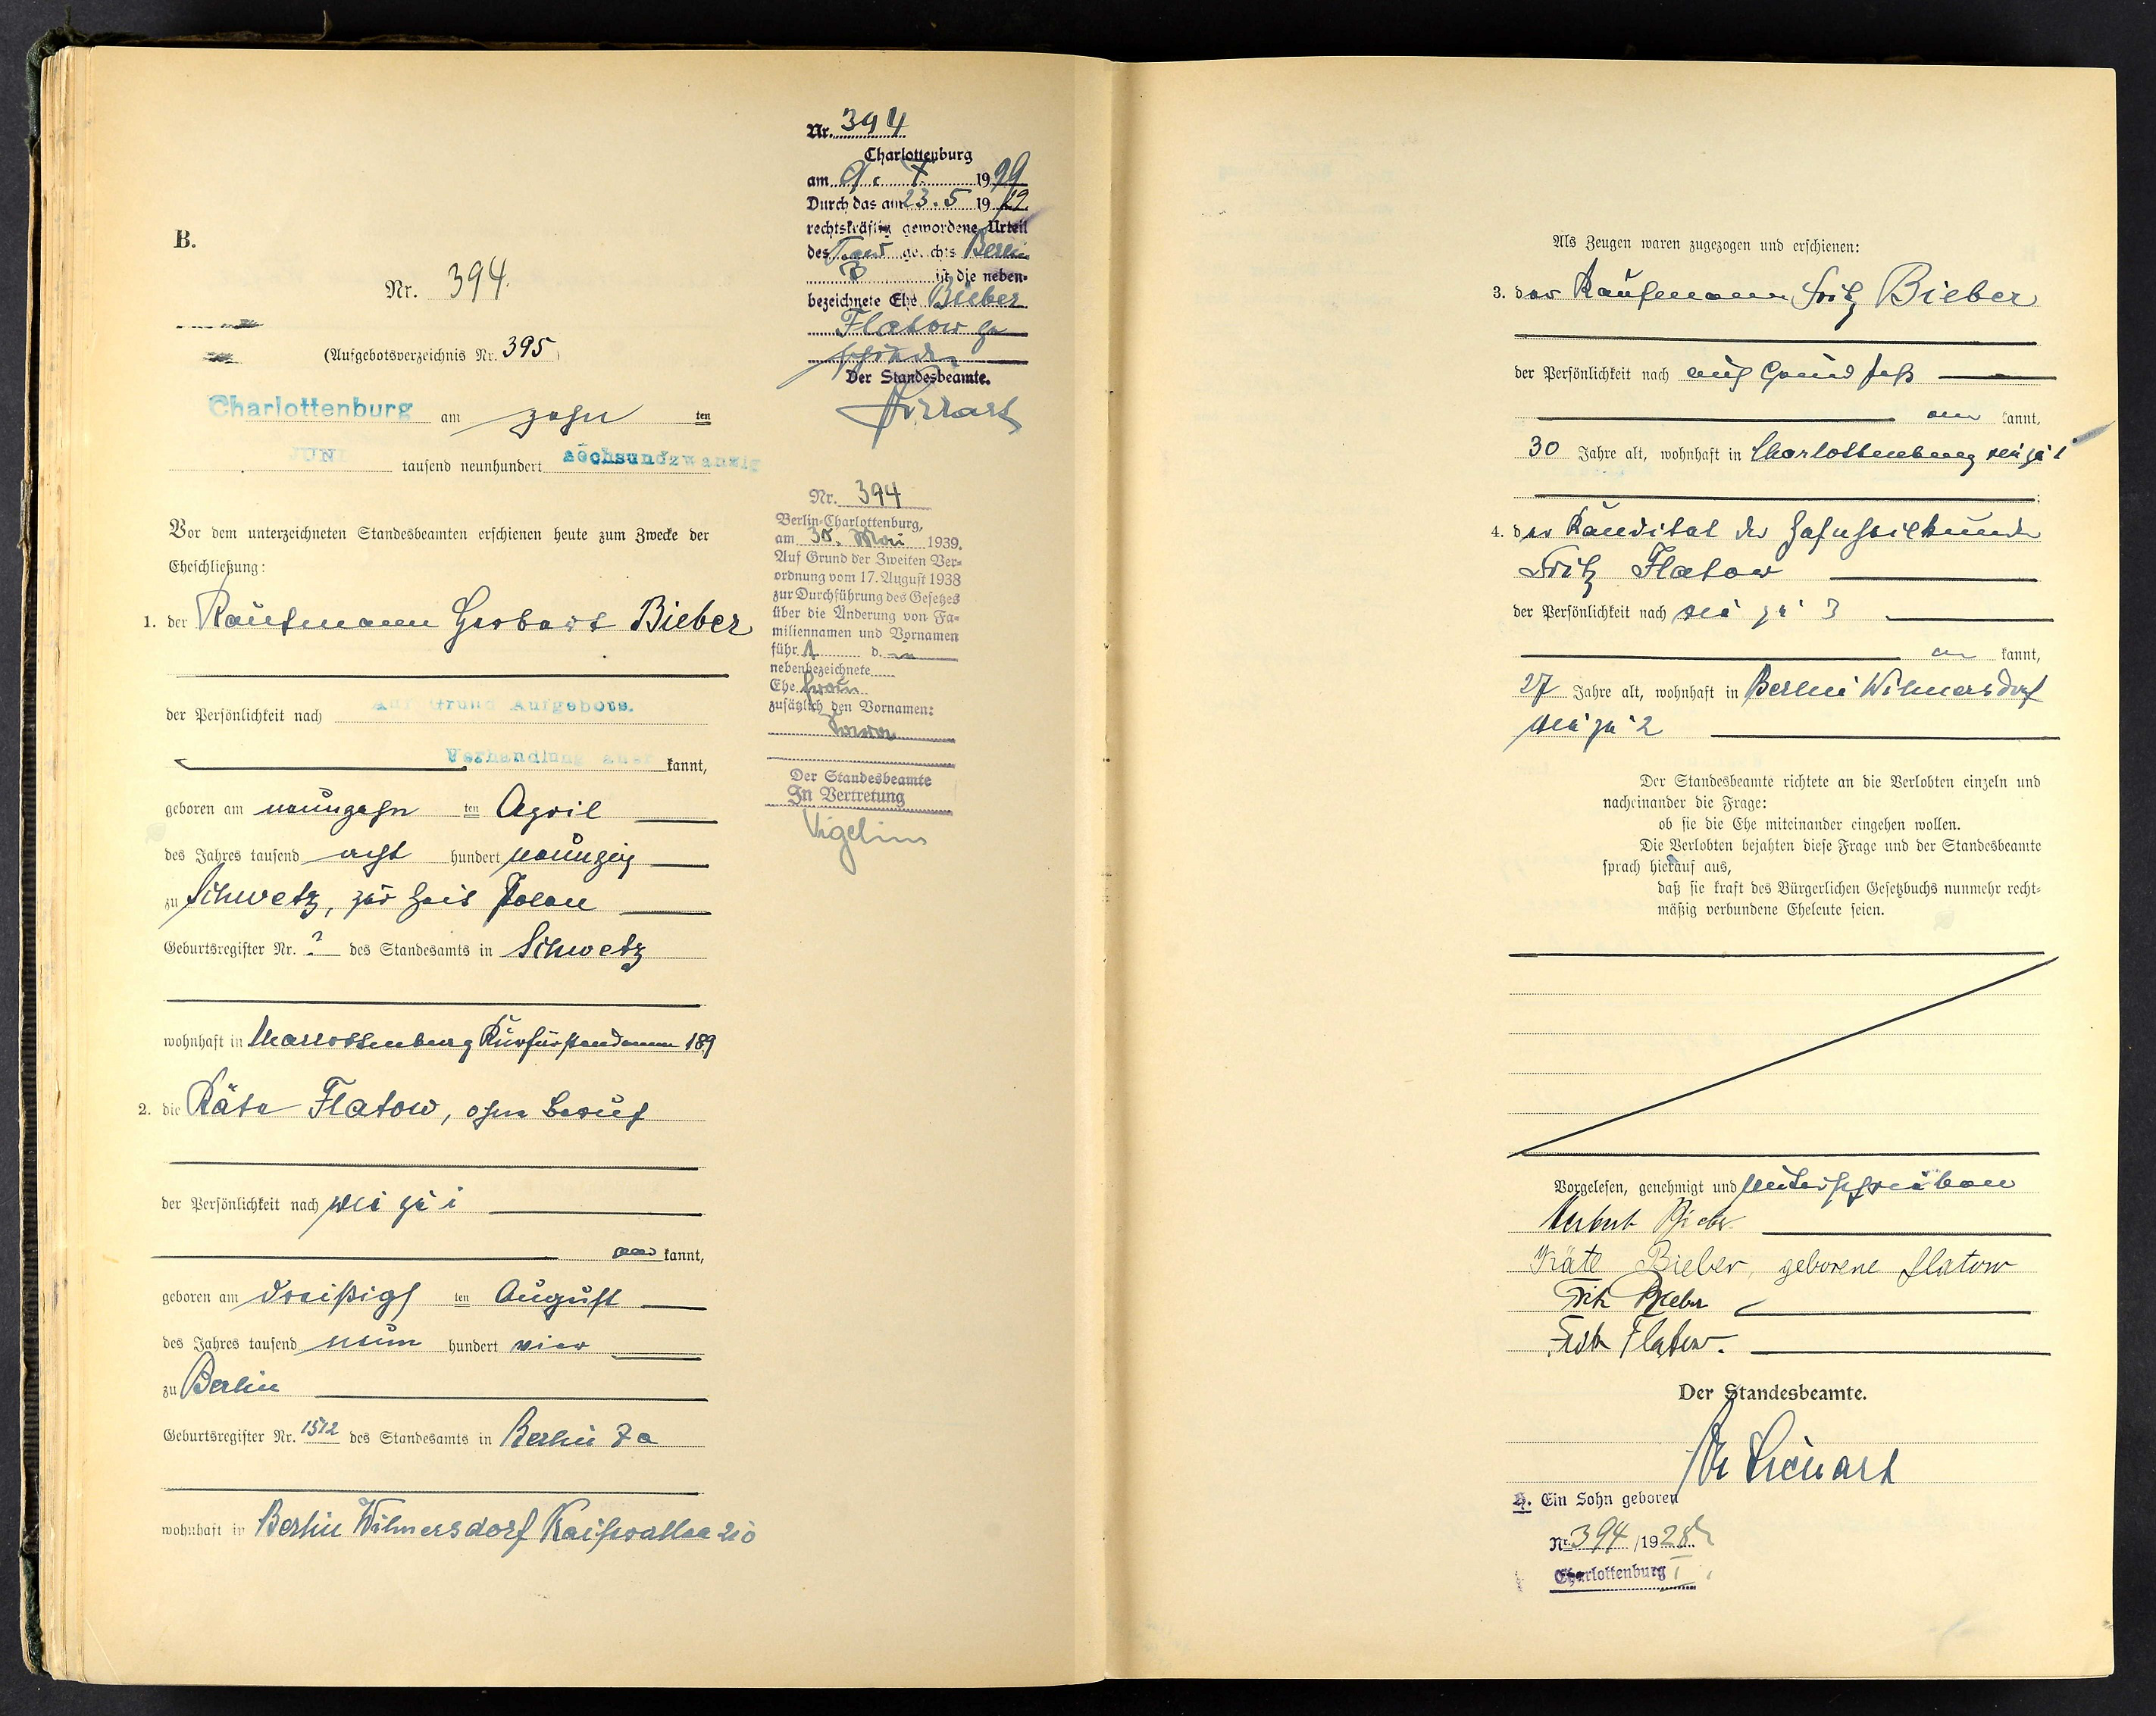 B.
Nr. 394.
(Aufgebotsverzeichnis Nr. 395)
Charlottenburg am zehn ten
JUNI tausend neunhundert sechsundzwanzig
Vor dem unterzeichneten Standesbeamten erschienen heute zum Zwecke der
Eheschließung:
1. der Kaufmann Herbert Bieber
der Persönlichkeit nach Auf Grund Aufgebots.
Verhandlung aner kannt,
geboren am neunzehn ten April
des Jahres tausend acht hundert neunzig
zu Schwetz, zur Zeit Polen
Geburtsregister Nr. ? des Standesamts in Schwetz
wohnhaft in Charlottenburg Kurfürstendamm 189
2. die Käte Flatow, ohne Beruf
der Persönlichkeit nach wie zu 1
aner kannt,
geboren am dreißigs ten August
des Jahres tausend neun hundert vier
zu Berlin
Geburtsregister Nr. 1512 des Standesamts in Berlin 7a
wohnhaft in Berlin Wilmersdorf Kaiserallee 210
Nr. 394
Charlottenburg
am 9. 7. 1929
Durch das am 23.5 1929
rechtskräftig gewordene Urteil
des Landgerichts Berlin
ist die neben-
bezeichnete Ehe Bieber
Flatow ge
schieden
Der Standesbeamte.
Nr. 394
Berlin-Charlottenburg,
am 30. Mai 1939.
Auf Grund der Zweiten Ver-
ordnung vom 17. August 1938
zur Durchführung des Gesetzes
über die Änderung von Fa-
miliennamen und Vornamen
führt d.
nebenbezeichnete
Ehefrau
zusätzlich den Vornamen:
Sara
Der Standesbeamte
In Vertretung
Vigelius
Als Zeugen waren zugezogen und erschienen:
3. der Kaufmann Fritz Bieber
der Persönlichkeit nach auf Grund Paß
aner kannt,
30 Jahre alt, wohnhaft in Charlottenburg wie zu 1
4. der Kandidat der Zahnheilkunde
Fritz Flatow
der Persönlichkeit nach wie zu 3
aner kannt,
27 Jahre alt, wohnhaft in Berlin Wilmersdorf
wie zu 2
Der Standesbeamte richtete an die Verlobten einzeln und
nacheinander die Frage:
ob sie die Ehe miteinander eingehen wollen.
Die Verlobten bejahten diese Frage und der Standesbeamte
sprach hierauf aus,
daß sie kraft des Bürgerlichen Gesetzbuchs nunmehr recht-
mäßig verbundene Eheleute seien.
Vorgelesen, genehmigt und unterschrieben
Herbert Bieber
Käte Bieber, geborene Flatow
Fritz Bieber
Fritz Flatow.
Der Standesbeamte.
Ein Sohn geboren
Nr. 394/1928
Charlottenburg I